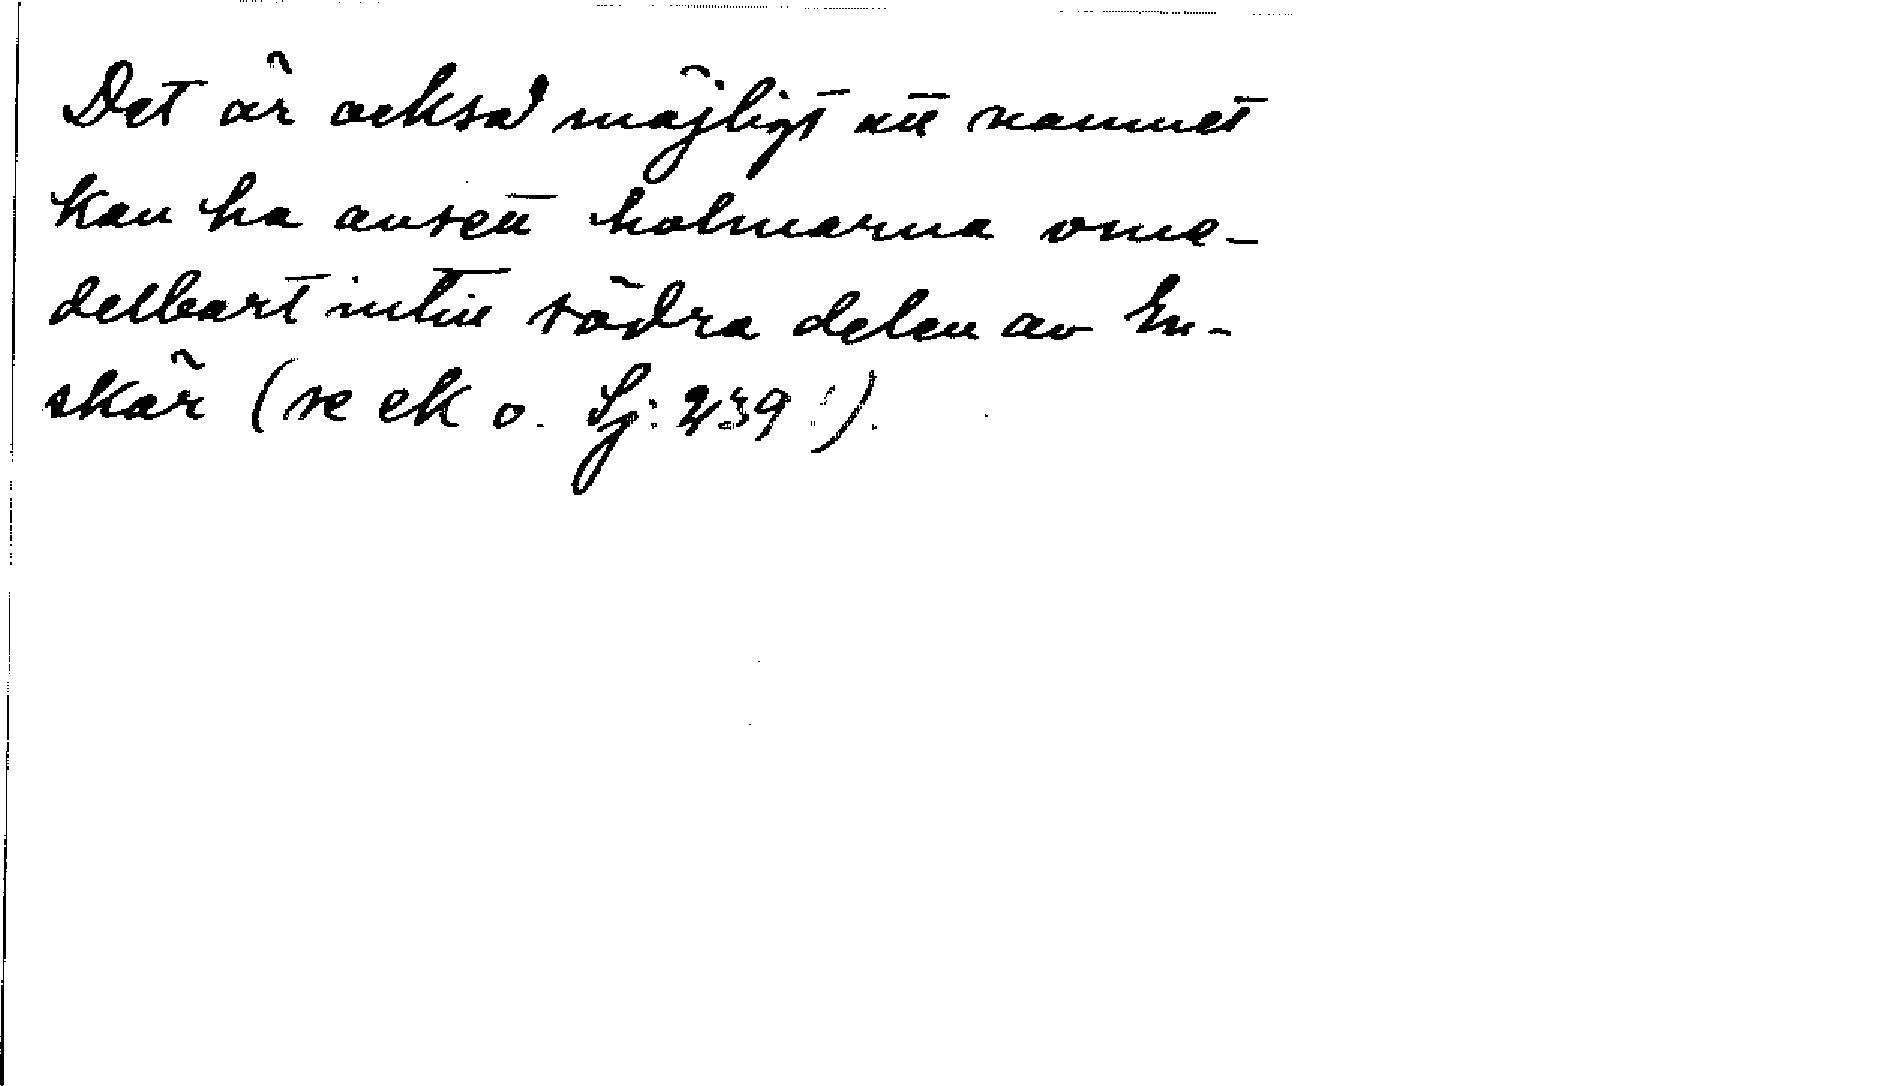 Det är också möjligt att namnet
kan ha avsett holmarna ome-
delbart intill södra delen av En-
skär (se ek o. Sj: 239!).